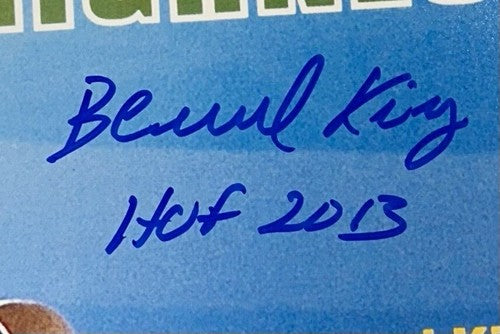 Bernard King
HOF 2013